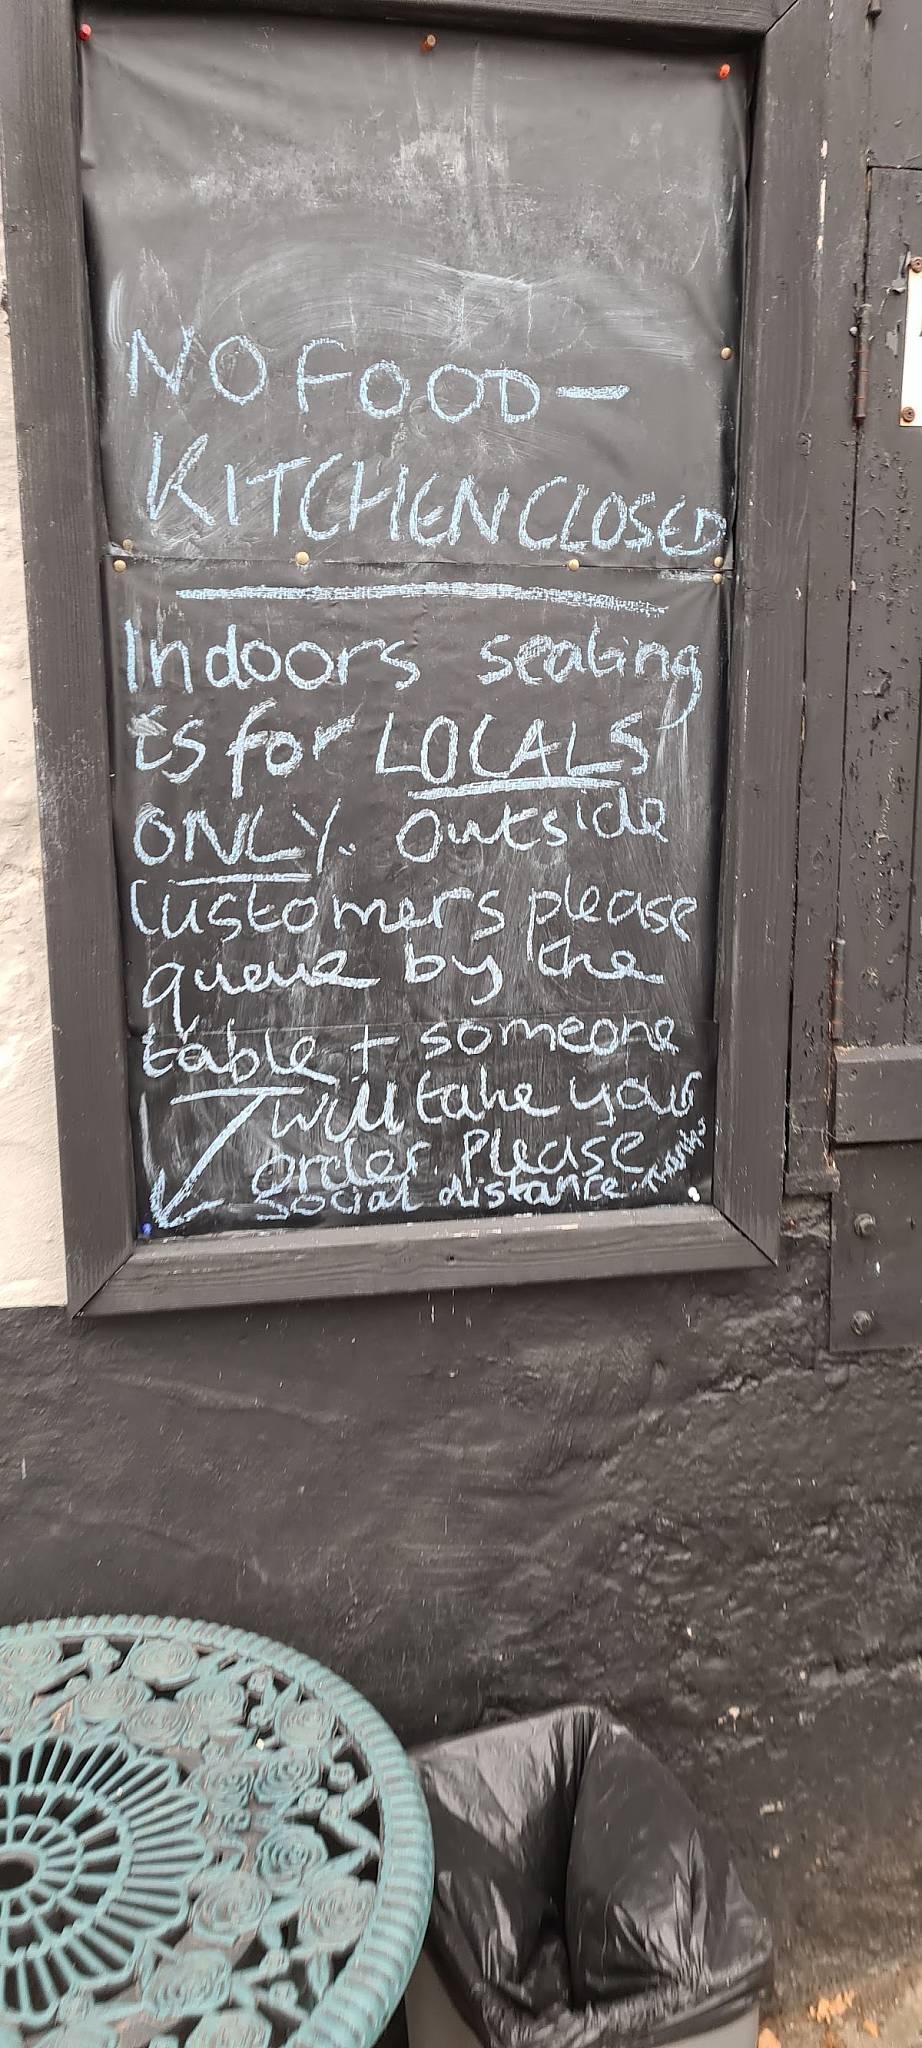 NO FOOD -
KITCHEN CLOSED
Indoors seating
is for LOCALS
ONLY. Outside
Customers please
queue by the
table + someone
will take your
order. Please
social distance. Thanks